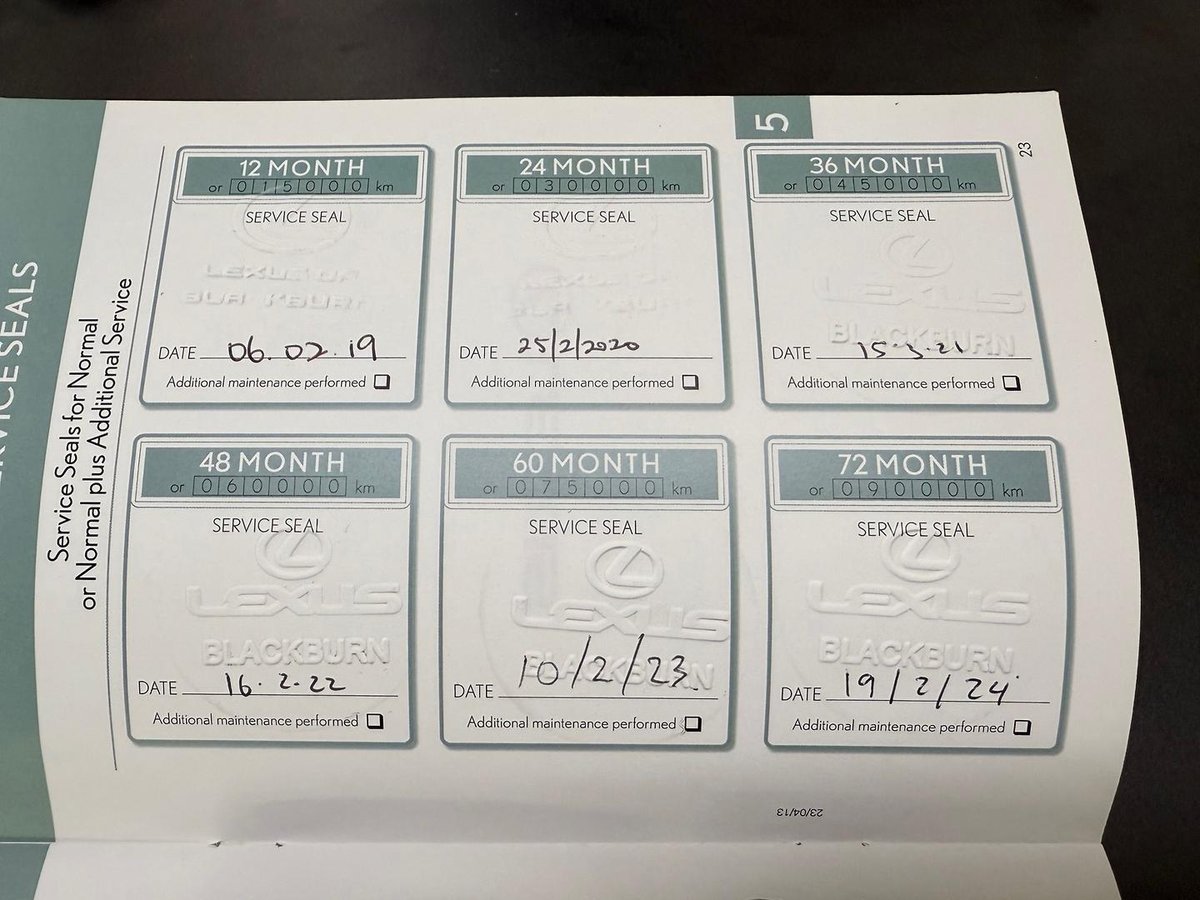 SERVICE SEALS
Service Seals for Normal
or Normal plus Additional Service
5
23
12 MONTH
or 015000 km
SERVICE SEAL
LEXUS OF
BLACKBURN
DATE 06.02.19
Additional maintenance performed
24 MONTH
or 030000 km
SERVICE SEAL
LEXUS OF
DATE 25/2/2020
Additional maintenance performed
36 MONTH
or 045000 km
SERVICE SEAL
LEXUS
BLACKBURN
DATE 15.3.21
Additional maintenance performed
48 MONTH
or 060000 km
SERVICE SEAL
LEXUS
BLACKBURN
DATE 16.2.22
Additional maintenance performed
60 MONTH
or 075000 km
SERVICE SEAL
LEXUS
BLACKBURN
DATE 10/2/23
Additional maintenance performed
72 MONTH
or 090000 km
SERVICE SEAL
LEXUS
BLACKBURN
DATE 19/2/24
Additional maintenance performed
23/04/13